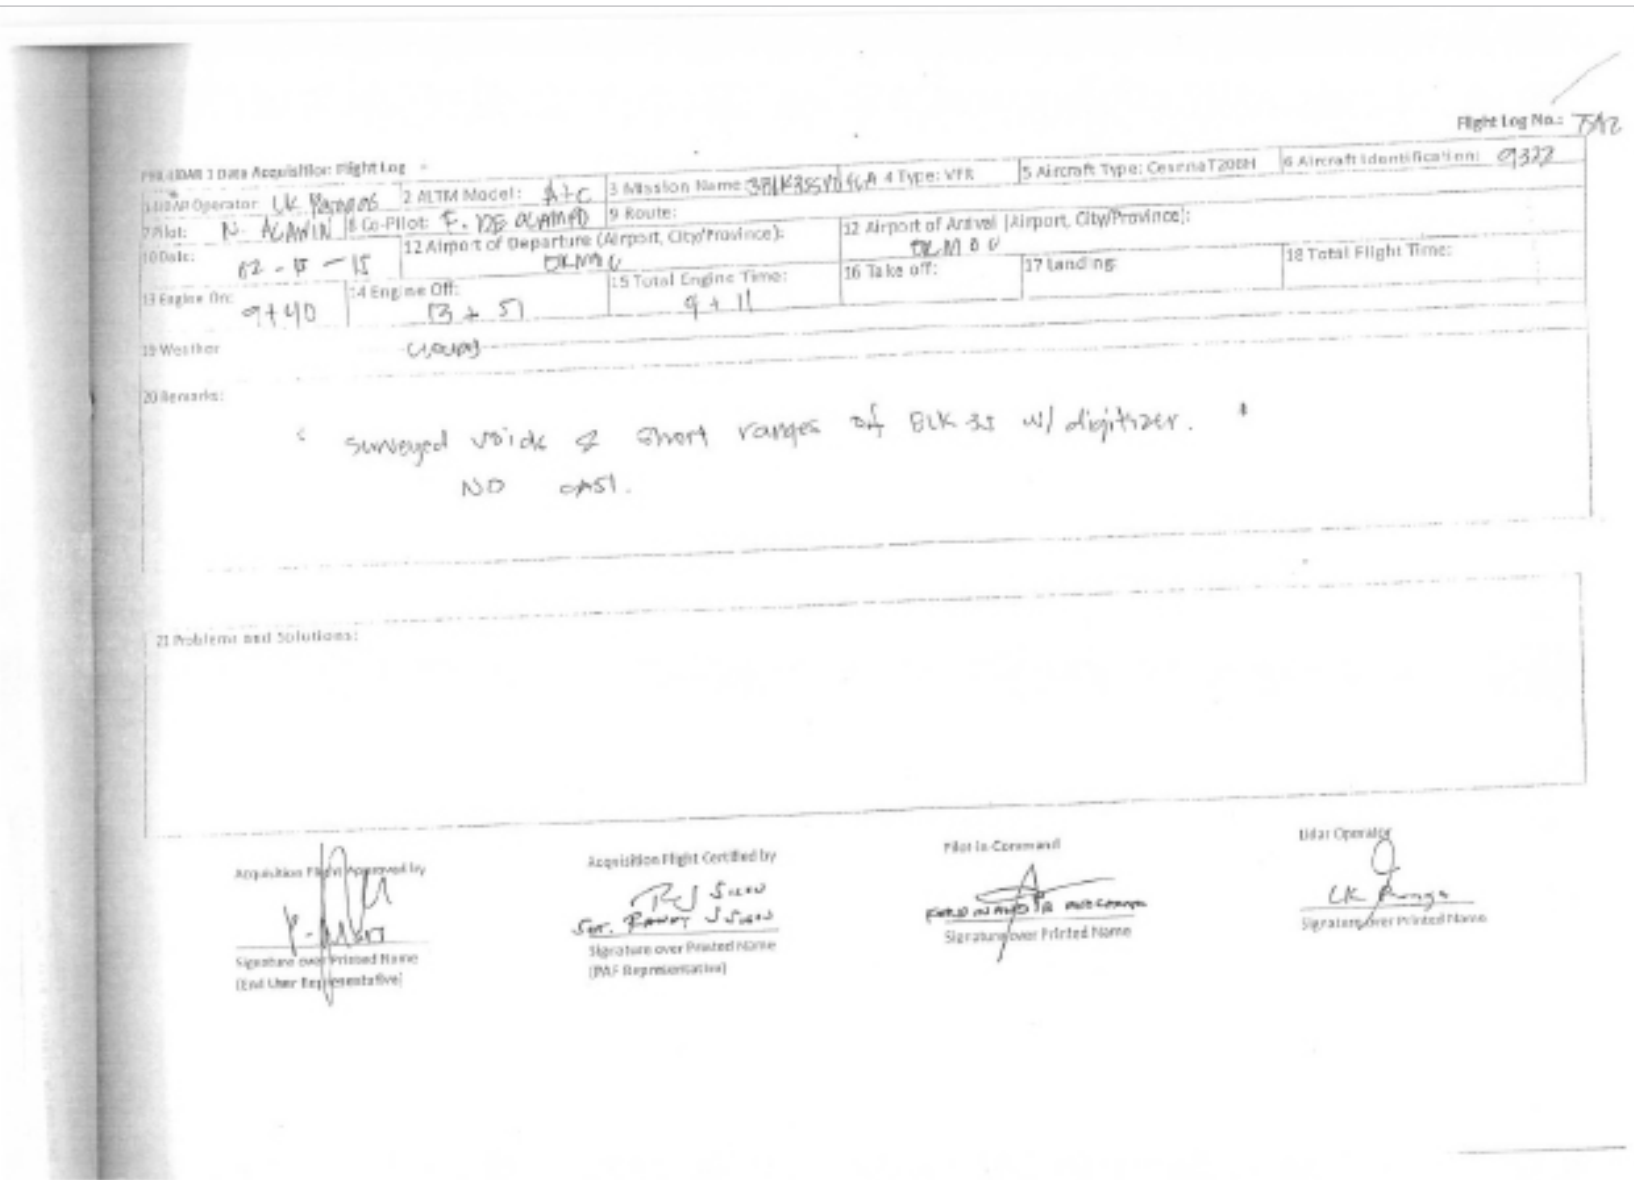 Flight Log No.:
PHIL-LIDAR 1 Data Acquisition Flight Log
1 LIDAR Operator: LK Paragas 2 ALTM Model: 3 Mission Name: 4 Type: VFR 5 Aircraft Type: Cesnna T206H 6 Aircraft Identification: 9322
7 Pilot: N. 8 Co-Pilot: F. 9 Route:
10 Date: 15 12 Airport of Departure (Airport, City/Province): 12 Airport of Arrival (Airport, City/Province):
13 Engine On: 9+40 14 Engine Off: 13 + 51 15 Total Engine Time: 4 + 11 16 Take off: 17 Landing: 18 Total Flight Time:
19 Weather cloudy
20 Remarks:
surveyed voids & short ranges of BLK w/ digitizer.
NO CASI.
21 Problems and Solutions:
Acquisition Flight Approved by
Signature over Printed Name
(End User Representative)
Acquisition Flight Certified by
Signature over Printed Name
(PAF Representative)
Pilot-in-Command
Signature over Printed Name
Lidar Operator
LK
Signature over Printed Name